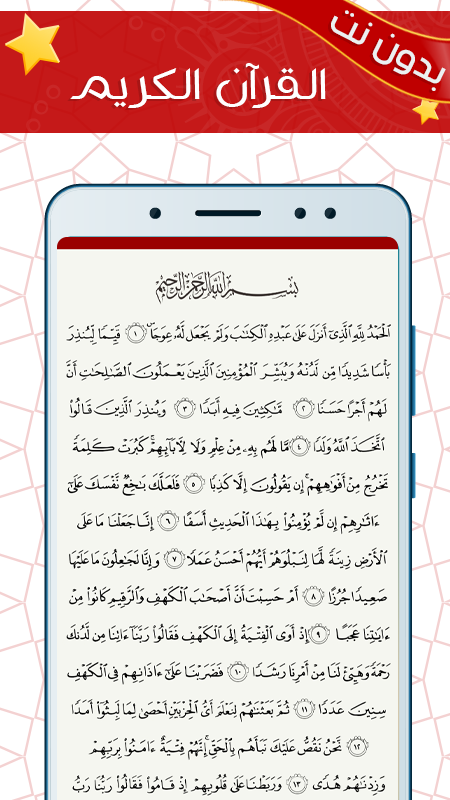 بدون نت
القرآن الكريم
بسم الله الرحمن الرحيم
ٱلْحَمْدُ لِلَّهِ ٱلَّذِىٓ أَنزَلَ عَلَىٰ عَبْدِهِ ٱلْكِتَٰبَ وَلَمْ يَجْعَل لَّهُۥ عِوَجَاۜ ١ قَيِّمًا لِّيُنذِرَ
بَأْسًا شَدِيدًا مِّن لَّدُنْهُ وَيُبَشِّرَ ٱلْمُؤْمِنِينَ ٱلَّذِينَ يَعْمَلُونَ ٱلصَّٰلِحَٰتِ أَنَّ
لَهُمْ أَجْرًا حَسَنًا ٢ مَّٰكِثِينَ فِيهِ أَبَدًا ٣ وَيُنذِرَ ٱلَّذِينَ قَالُوا۟
ٱتَّخَذَ ٱللَّهُ وَلَدًا ٤ مَّا لَهُم بِهِۦ مِنْ عِلْمٍ وَلَا لِءَابَآئِهِمْ ۚ كَبُرَتْ كَلِمَةً
تَخْرُجُ مِنْ أَفْوَٰهِهِمْ ۚ إِن يَقُولُونَ إِلَّا كَذِبًا ٥ فَلَعَلَّكَ بَٰخِعٌ نَّفْسَكَ عَلَىٰٓ
ءَاثَٰرِهِمْ إِن لَّمْ يُؤْمِنُوا۟ بِهَٰذَا ٱلْحَدِيثِ أَسَفًا ٦ إِنَّا جَعَلْنَا مَا عَلَى
ٱلْأَرْضِ زِينَةً لَّهَا لِنَبْلُوَهُمْ أَيُّهُمْ أَحْسَنُ عَمَلًا ٧ وَإِنَّا لَجَٰعِلُونَ مَا عَلَيْهَا
صَعِيدًا جُرُزًا ٨ أَمْ حَسِبْتَ أَنَّ أَصْحَٰبَ ٱلْكَهْفِ وَٱلرَّقِيمِ كَانُوا۟ مِنْ
ءَايَٰتِنَا عَجَبًا ٩ إِذْ أَوَى ٱلْفِتْيَةُ إِلَى ٱلْكَهْفِ فَقَالُوا۟ رَبَّنَآ ءَاتِنَا مِن لَّدُنكَ
رَحْمَةً وَهَيِّئْ لَنَا مِنْ أَمْرِنَا رَشَدًا ١٠ فَضَرَبْنَا عَلَىٰٓ ءَاذَانِهِمْ فِى ٱلْكَهْفِ
سِنِينَ عَدَدًا ١١ ثُمَّ بَعَثْنَٰهُمْ لِنَعْلَمَ أَىُّ ٱلْحِزْبَيْنِ أَحْصَىٰ لِمَا لَبِثُوٓا۟ أَمَدًا
١٢ نَّحْنُ نَقُصُّ عَلَيْكَ نَبَأَهُم بِٱلْحَقِّ ۚ إِنَّهُمْ فِتْيَةٌ ءَامَنُوا۟ بِرَبِّهِمْ
وَزِدْنَٰهُمْ هُدًى ١٣ وَرَبَطْنَا عَلَىٰ قُلُوبِهِمْ إِذْ قَامُوا۟ فَقَالُوا۟ رَبُّنَا رَبُّ